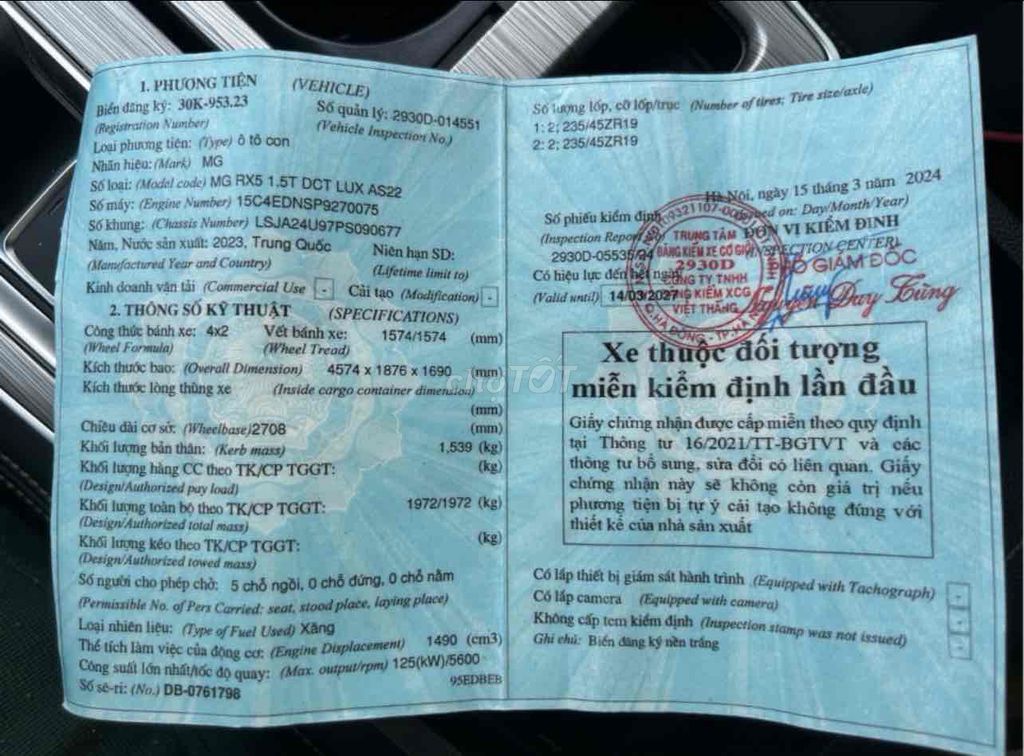 1. PHƯƠNG TIỆN (VEHICLE)
Biển đăng ký: 30K-953.23 Số quản lý: 2930D-014551
(Registration Number) (Vehicle Inspection No.)
Loại phương tiện: (Type) ô tô con
Nhãn hiệu: (Mark) MG
Số loại: (Model code) MG RX5 1.5T DCT LUX AS22
Số máy: (Engine Number) 15C4EDNSP9270075
Số khung: (Chassis Number) LSJA24U97PS090677
Năm, Nước sản xuất: 2023, Trung Quốc Niên hạn SD:
(Manufactured Year and Country) (Lifetime limit to)
Kinh doanh vận tải (Commercial Use - Cải tạo (Modification) -
2. THÔNG SỐ KỸ THUẬT (SPECIFICATIONS)
Công thức bánh xe: 4x2 Vết bánh xe: 1574/1574 (mm)
(Wheel Formula) (Wheel Tread)
Kích thước bao: (Overall Dimension) 4574 x 1876 x 1690 (mm)
Kích thước lòng thùng xe (Inside cargo container dimension)
(mm)
Chiều dài cơ sở: (Wheelbase) 2708 (mm)
Khối lượng bản thân: (Kerb mass) 1,539 (kg)
Khối lượng hàng CC theo TK/CP TGGT: (kg)
(Design/Authorized pay load)
Khối lượng toàn bộ theo TK/CP TGGT: 1972/1972 (kg)
(Design/Authorized total mass)
Khối lượng kéo theo TK/CP TGGT: (kg)
(Design/Authorized towed mass)
Số người cho phép chở: 5 chỗ ngồi, 0 chỗ đứng, 0 chỗ nằm
(Permissible No. of Pers Carried: seat, stood place, laying place)
Loại nhiên liệu: (Type of Fuel Used) Xăng
Thể tích làm việc của động cơ: (Engine Displacement) 1490 (cm3)
Công suất lớn nhất/tốc độ quay: (Max. output/rpm) 125(kW)/5600
Số sê-ri: (No.) DB-0761798 95EDBEB
Số lượng lốp, cỡ lốp/trục (Number of tires; Tire size/axle)
1: 2; 235/45ZR19
2: 2; 235/45ZR19
Hà Nội, ngày 15 tháng 3 năm 2024
Số phiếu kiểm định on: Day/Month/Year)
(Inspection Report ĐƠN VỊ KIỂM ĐỊNH
2930D-05535/24 INSPECTION CENTER)
Có hiệu lực đến hết ngày PHÓ GIÁM ĐỐC
(Valid until) 14/03/2027
TRUNG TÂM
ĐĂNG KIỂM XE CƠ GIỚI
2930D
CÔNG TY TNHH
ĐĂNG KIỂM XCG
VIỆT THẮNG
Q.HÀ ĐÔNG - TP.HÀ
Nguyễn Duy Tùng
Xe thuộc đối tượng
miễn kiểm định lần đầu
Giấy chứng nhận được cấp miễn theo quy định
tại Thông tư 16/2021/TT-BGTVT và các
thông tư bổ sung, sửa đổi có liên quan. Giấy
chứng nhận này sẽ không còn giá trị nếu
phương tiện bị tự ý cải tạo không đúng với
thiết kế của nhà sản xuất
Có lắp thiết bị giám sát hành trình (Equipped with Tachograph) -
Có lắp camera (Equipped with camera) -
Không cấp tem kiểm định (Inspection stamp was not issued) -
Ghi chú: Biển đăng ký nền trắng
chợTỐT